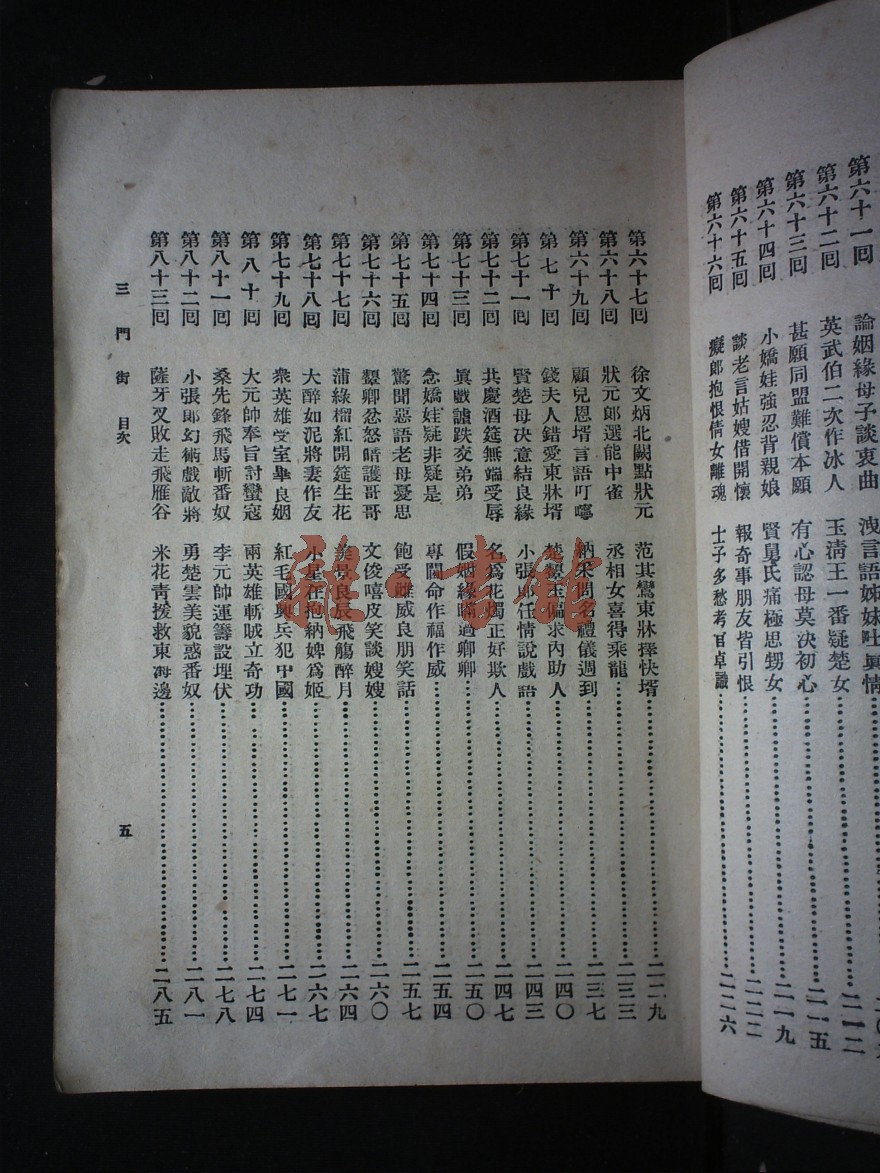 第六十一回 論姻緣母子談衷曲 洩言語姊妹吐眞情
第六十二回 英武伯二次作冰人 玉淸王一番疑楚女……二一二
第六十三回 甚願同盟難償本願 有心認母莫決初心……二一五
第六十四回 小嬌娃強忍背親娘 賢舅氏痛極思甥女……二一九
第六十五回 談老言姑嫂借開懷 報奇事朋友皆引恨……二二二
第六十六回 癡郎抱恨倩女離魂 士子多愁考官卓識……二二六
第六十七回 徐文炳北闕點狀元 范其鸞東牀擇快壻……二二九
第六十八回 狀元郎選能中雀 丞相女喜得乘龍……二三三
第六十九回 顧兒恩壻言語叮嚀 納采問名禮儀週到……二三七
第七十回 錢夫人錯愛東牀壻 楚顰玉偏求內助人……二四〇
第七十一回 賢楚母决意結良緣 小張郎任情說戲語……二四三
第七十二回 共慶酒筵無端受辱 名爲花燭正好欺人……二四七
第七十三回 眞戲謔跌交弟弟 假姻緣瞞過卿卿……二五〇
第七十四回 念嬌娃疑非疑是 專閫命作福作威……二五四
第七十五回 驚聞惡語老母憂思 飽受雌威良朋笑話……二五七
第七十六回 顰卿忿怒暗護哥哥 文俊嘻皮笑談嫂嫂……二六〇
第七十七回 蒲綠榴紅開筵生花 美景良辰飛觴醉月……二六四
第七十八回 大醉如泥將妻作友 小星在抱納婢爲姬……二六七
第七十九回 衆英雄受室畢良姻 紅毛國興兵犯中國……二七一
第八十回 大元帥奉旨討蠻寇 兩英雄斬賊立奇功……二七四
第八十一回 桑先鋒飛馬斬番奴 李元帥運籌設埋伏……二七八
第八十二回 小張郎幻術戲敵將 勇楚雲美貌惑番奴……二八一
第八十三回 薩牙叉敗走飛雁谷 米花青援救東海邊……二八五
三門街 目次
五